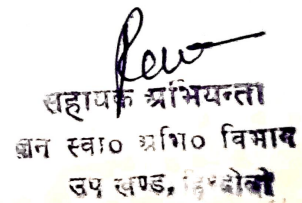 सहायक अभियन्ता
जन स्वा० अभि० विभाग
उप खण्ड,